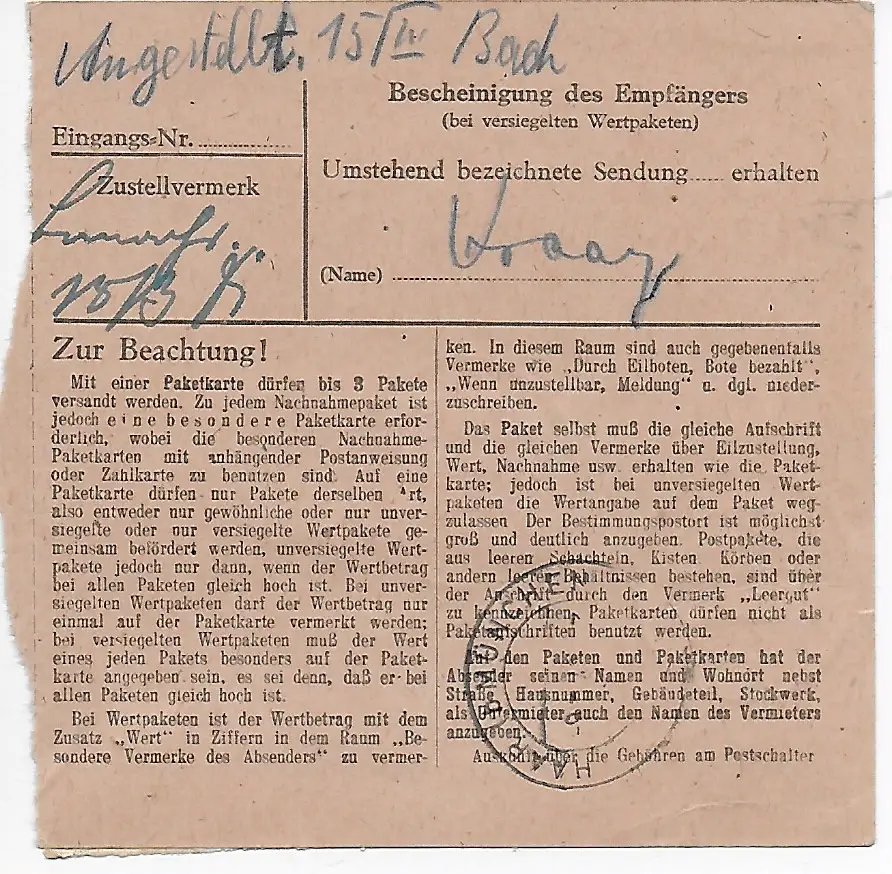 Angestellt. 15/IV Bach
Eingangs-Nr. ................
Zustellvermerk
Bescheinigung des Empfängers
(bei versiegelten Wertpaketen)
Umstehend bezeichnete Sendung...... erhalten
(Name) ................
Zur Beachtung!
Mit einer Paketkarte dürfen bis 3 Pakete
versandt werden. Zu jedem Nachnahmepaket ist
jedoch eine besondere Paketkarte erfor-
derlich, wobei die besonderen Nachnahme-
Paketkarten mit anhängender Postanweisung
oder Zahlkarte zu benutzen sind. Auf eine
Paketkarte dürfen nur Pakete derselben Art,
also entweder nur gewöhnliche oder nur unver-
siegelte oder nur versiegelte Wertpakete ge-
meinsam befördert werden, unversiegelte Wert-
pakete jedoch nur dann, wenn der Wertbetrag
bei allen Paketen gleich hoch ist. Bei unver-
siegelten Wertpaketen darf der Wertbetrag nur
einmal auf der Paketkarte vermerkt werden;
bei versiegelten Wertpaketen muß der Wert
eines jeden Pakets besonders auf der Paket-
karte angegeben sein, es sei denn, daß er bei
allen Paketen gleich hoch ist.
Bei Wertpaketen ist der Wertbetrag mit dem
Zusatz „Wert“ in Ziffern in dem Raum „Be-
sondere Vermerke des Absenders“ zu vermer-
ken. In diesem Raum sind auch gegebenenfalls
Vermerke wie „Durch Eilboten, Bote bezahlt“,
„Wenn unzustellbar, Meldung“ u. dgl. nieder-
zuschreiben.
Das Paket selbst muß die gleiche Aufschrift
und die gleichen Vermerke über Eilzustellung,
Wert, Nachnahme usw. erhalten wie die Paket-
karte; jedoch ist bei unversiegelten Wert-
paketen die Wertangabe auf dem Paket weg-
zulassen Der Bestimmungspostort ist möglichst
groß und deutlich anzugeben. Postpakete, die
aus leeren Schachteln, Kisten Körben oder
andern leeren Behältnissen bestehen, sind über
der Anschrift durch den Vermerk „Leergut“
zu kennzeichnen. Paketkarten dürfen nicht als
Paketaufschriften benutzt werden.
Auf den Paketen und Paketkarten hat der
Absender seinen Namen und Wohnort nebst
Straße, Hausnummer, Gebäudeteil, Stockwerk,
als Untermieter auch den Namen des Vermieters
anzugeben.
Auskunft über die Gebühren am Postschalter
HAAR MÜNCHEN